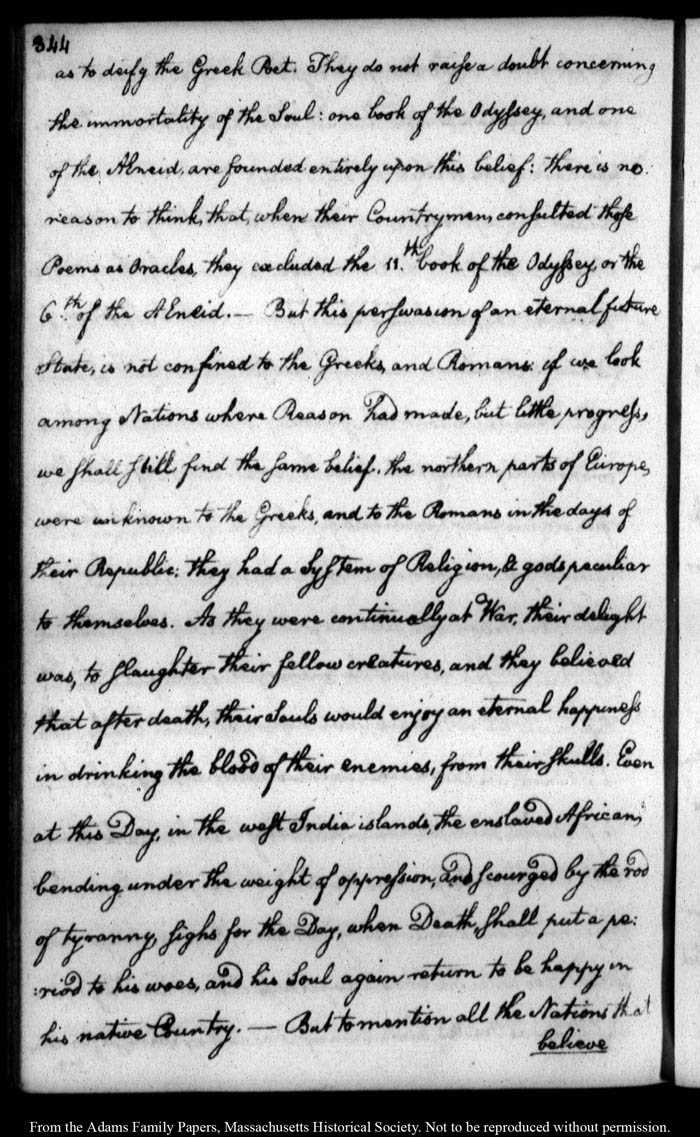 344
as to deify the Greek Poet. They do not raise a doubt concerning
the immortality of the Soul: one book of the Odyssey, and one
of the AEneid, are founded entirely upon this belief: there is no
reason to think, that, when their Countrymen, consulted those
Poems as Oracles, they excluded the 11.th book of the Odyssey, or the
6.th of the AEneid. — But this perswasion of an eternal future
State, is not confined to the Greeks, and Romans: if we look
among Nations where Reason had made, but little progress,
we shall still find the same belief. the northern parts of Europe,
were unknown to the Greeks, and to the Romans in the days of
their Republic; they had a System of Religion, & gods peculiar
to themselves. As they were continually at War, their delight
was, to slaughter their fellow creatures, and they believed
that after death, their souls would enjoy an eternal happiness
in drinking the blood of their enemies, from their skulls. Even
at this Day, in the west India islands, the enslaved African,
bending under the weight of oppression, and scourged by the rod
of tyranny, sighs for the Day, when Death, shall put a pe:
:riod to his woes, and his Soul again return to be happy in
his native Country. — But to mention all the Nations that
believe
From the Adams Family Papers, Massachusetts Historical Society. Not to be reproduced without permission.